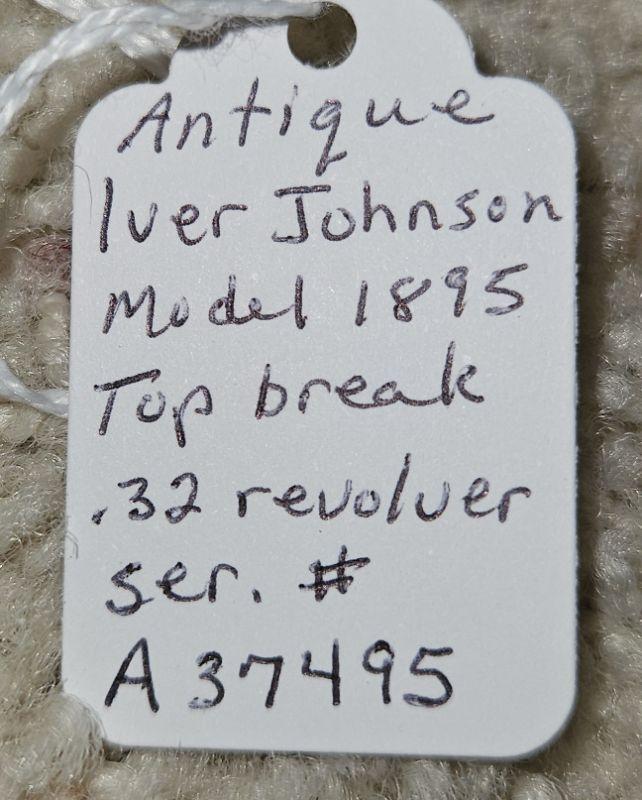 Antique
Iver Johnson
Model 1895
Top break
.32 revolver
ser. #
A37495